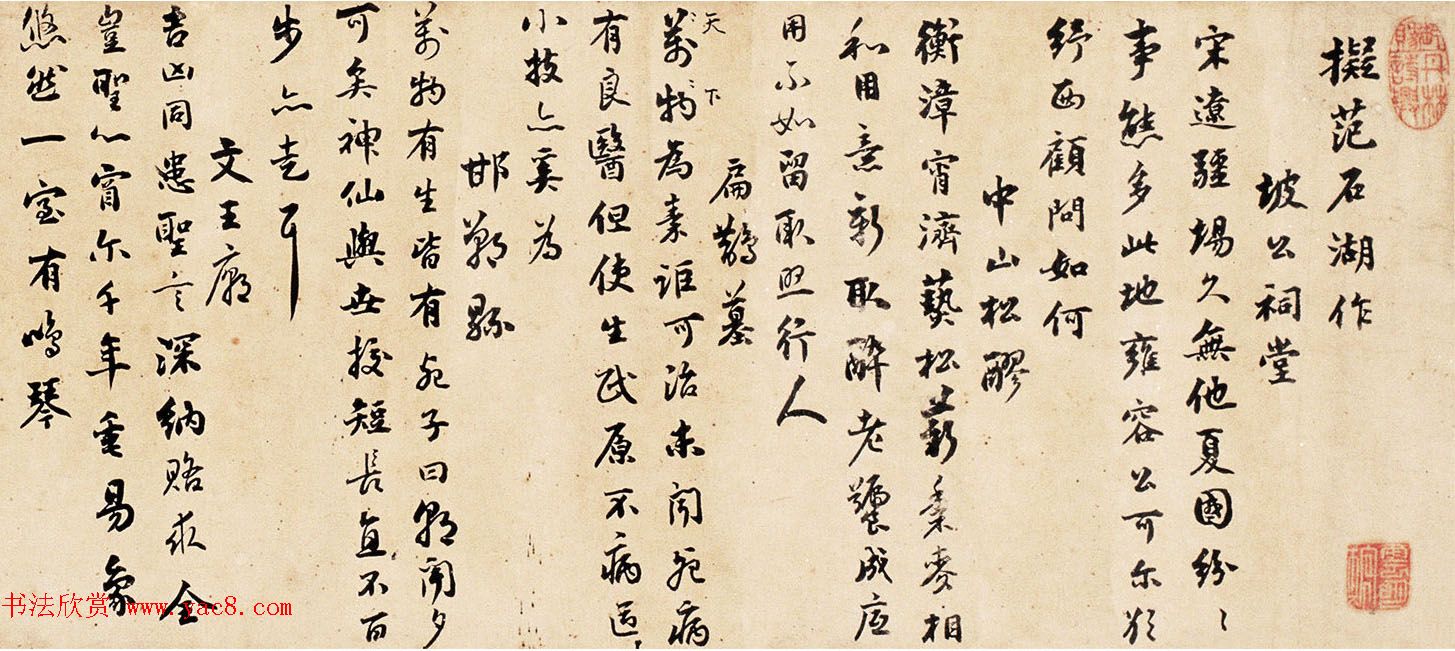 擬范石湖作
坡公祠堂
宋遼疆場久無他夏國紛〻
事熊多此地雍容公可尔於
紓西顧問如何
中山松醪
衡漳宵濟藝松薪黍麥相
和用意新取醉老饕成底
用不如留取照行人
扁鵲墓
天下
萬物為橐詎可治未聞死病
有良醫但使生民原不病區〻
小技亦奚為
邯鄲縣
萬物有生皆有死子曰朝聞夕
可矣神仙與世挍短長直不百
步亦走耳
文王廟
吉凶同患聖言深納賂求全
豈聖心宵尔千年重易象
悠然一室有鳴琴
书法欣赏 www.yac8.com